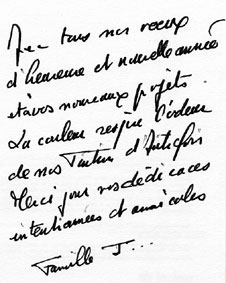 Avec tous nos voeux
d'heureuse et nouvelle année
et à vos nouveaux projets.
La couleur respire l'odeur
de nos Tintin d'Autrefois
Merci pour vos dédicaces
intentionnées et amicales
Famille J...